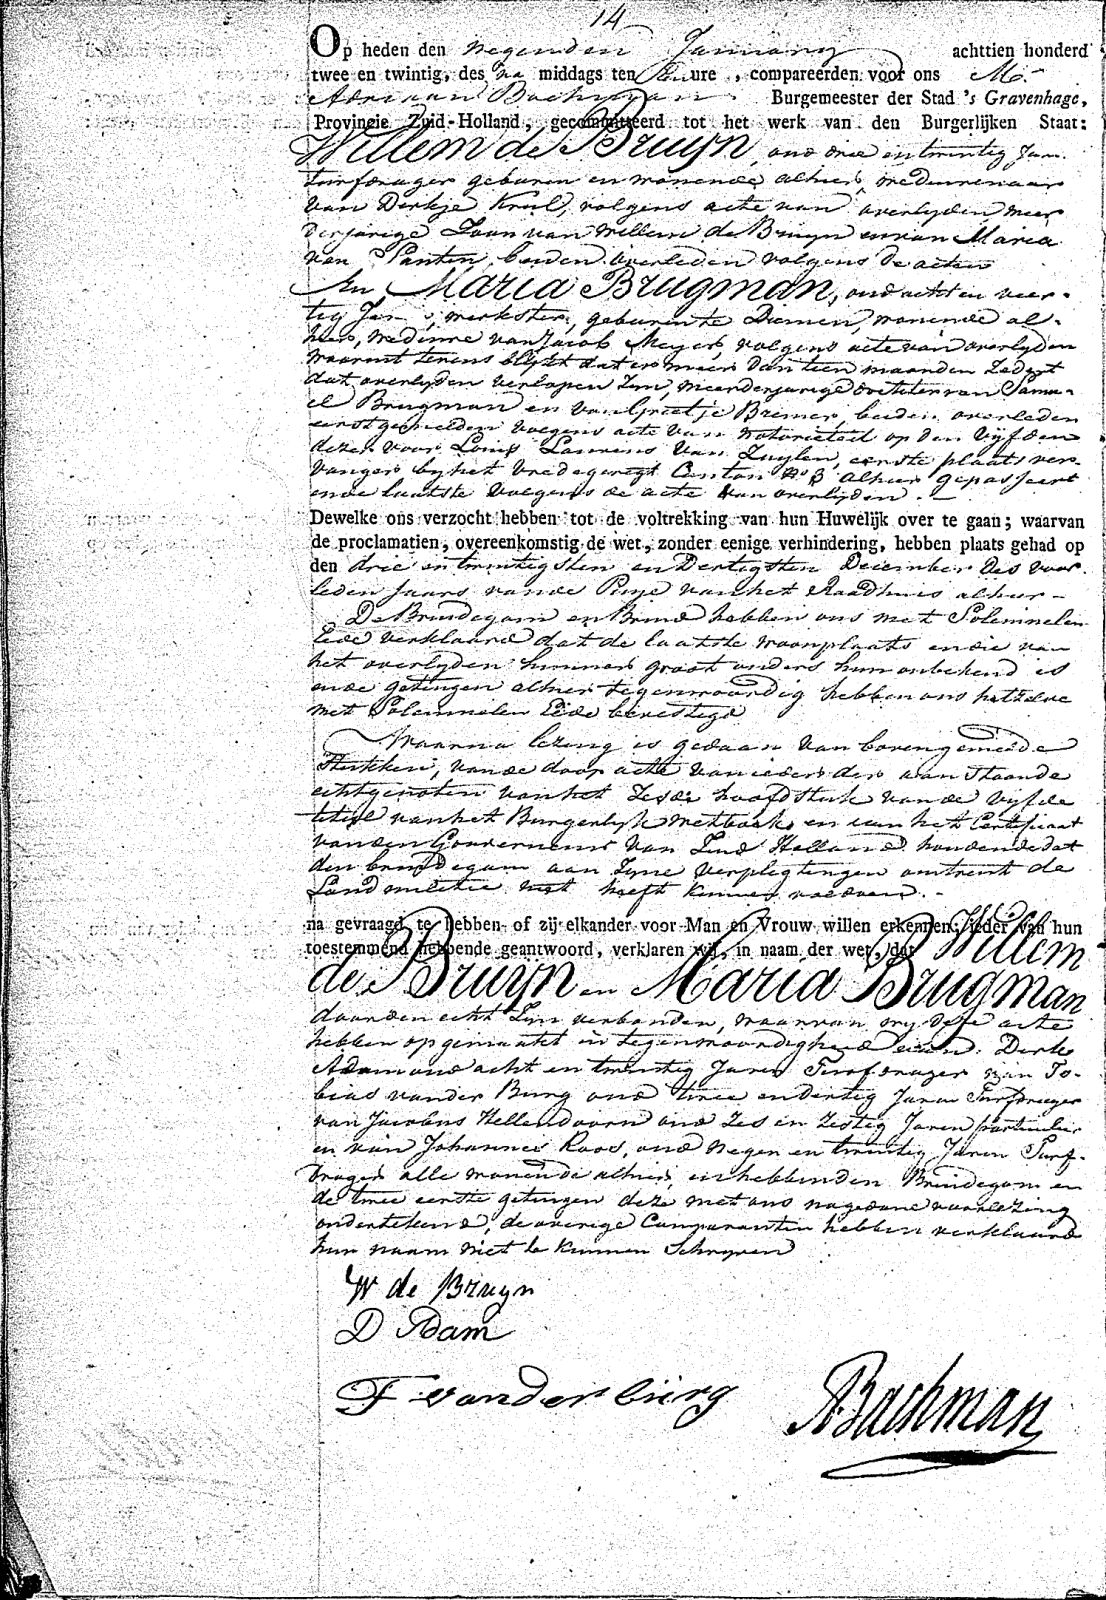 14
Op heden den negenden January achttien honderd
twee en twintig, des na middags ten ure, compareerden voor ons Mr
Adriaan Bachman Burgemeester der Stad 's Gravenhage,
Provincie Zuid-Holland, gecommitteerd tot het werk van den Burgerlijken Staat:
Willem de Bruyn, oud drie en twintig Jaren
turfdrager geboren en wonende alhier, weduwenaar
van Dirkje Krul, volgens acte van overlyden meer
derjarige Zoon van Willem de Bruyn en van Maria
van Santen, beiden overleden volgens de acten
En Maria Brugman, oud acht en veer-
tig Jaren, werkster, geboren te Diemen, wonende al-
hier, weduwe van Jacob Meyer, volgens acte van overlyden
waaruit tevens blykt dat er meer dan tien maanden Zedert
dat overlyden verlopen Zyn, meerderjarige dochter van Samu-
el Brugman en van Grietje Bremer, beiden overleden
eerstgemelden volgens acte van notorieteit op den vyfden
dezer voor Louis Laurens van Zuylen, eerste plaatsver-
vanger by het vredegeregt Canton No 3 alhier gepasseert
en de laatste volgens de acte van overlyden.
Dewelke ons verzocht hebben tot de voltrekking van hun Huwelijk over te gaan; waarvan
de proclamatien, overeenkomstig de wet, zonder eenige verhindering, hebben plaats gehad op
den drie en twintigsten en Dertigsten December des voor
leden Jaars van de Puye van het Raadhuis alhier -
De Bruidegom en Bruid hebben ons met Solemnelen
Eede verklaard dat de laatste woonplaats en die van
het overlyden hunner groot ouders hun onbekend is
en de getuigen alhier tegenwoordig hebben ons hetzelve
met Solemnelen Eede bevestigd
Waarna lezing is gedaan van bovengemelde
Stukken, van de doop acte van ieder der aanstaande
echtgenoten van het Zesde hoofdstuk van de vyfde
titel van het Burgerlyk wetboek en van het Certificaat
van den Gouverneur van Zuid Holland houdende dat
den bruidegom aan Zyne verplegtingen omtrent de
Land militie niet heeft kunnen voldoen. -
na gevraagd te hebben of zij elkander voor Man en Vrouw willen erkennen; ieder van hun
toestemmend hebbende geantwoord, verklaren wij, in naam der wet, dat Willem
de Bruyn en Maria Brugman
door den echt Zyn verbonden, waarvan wy deze acte
hebben opgemaakt in tegenwoordigheid van Dirk
Adam oud acht en twintig Jaren Turfdrager van To-
bias van der Burg oud twee en dertig Jaren Turfdrager
van Jacobus Hellendoorn oud Zes en Zestig Jaren particulier
en van Johannes Roos, oud negen en twintig Jaren Turf-
drager alle wonende alhier, en hebben den Bruidegom en
de twee eerste getuigen deze met ons na gedane voorlezing
ondertekend, de overige Comparanten hebben verklaard
hun naam niet te kunnen Schryven
W de Bruyn
D Adam
T van der burg
ABachman